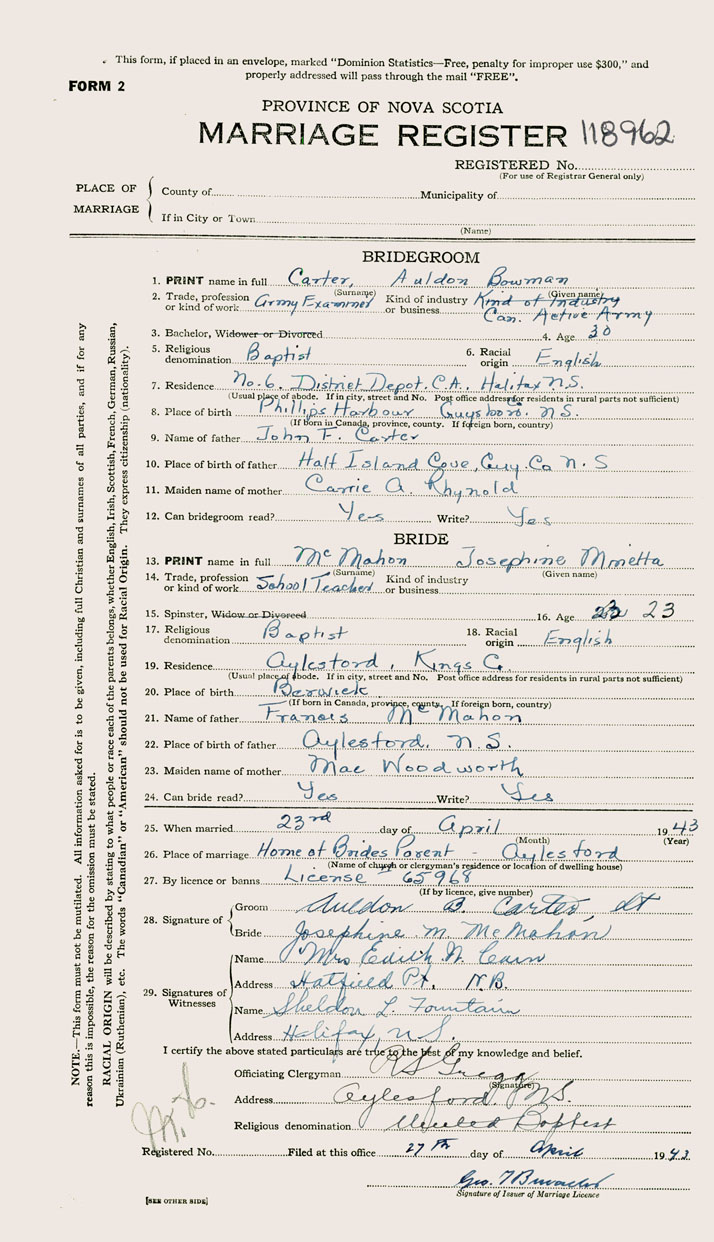 This form, if placed in an envelope, marked "Dominion Statistics—Free, penalty for improper use $300," and
properly addressed will pass through the mail "FREE".
FORM 2
PROVINCE OF NOVA SCOTIA
MARRIAGE REGISTER 118962
REGISTERED No.
(For use of Registrar General only)
PLACE OF MARRIAGE
County of Municipality of
If in City or Town
(Name)
BRIDEGROOM
1. PRINT name in full Carter, Auldon Bowman
(Surname) (Given name)
2. Trade, profession or kind of work Army Examiner Kind of industry or business Kind of Industry
Can. Active Army
3. Bachelor, Widower or Divorced 4. Age 30
5. Religious denomination Baptist 6. Racial origin English
7. Residence No. 6. District Depot. C.A. Halifax N.S.
(Usual place of abode. If in city, street and No. Post office address for residents in rural parts not sufficient)
8. Place of birth Phillips Harbour Guysboro. N.S.
(If born in Canada, province, county. If foreign born, country)
9. Name of father John F. Carter
10. Place of birth of father Half Island Cove, Guy. Co N.S
11. Maiden name of mother Carrie A. Rhynold
12. Can bridegroom read? Yes Write? Yes
BRIDE
13. PRINT name in full McMahon Josephine
(Surname) (Given name)
14. Trade, profession or kind of work School Teacher Kind of industry or business
15. Spinster, Widow or Divorced 16. Age 23 23
17. Religious denomination Baptist 18. Racial origin English
19. Residence Aylesford, Kings C.
(Usual place of abode. If in city, street and No. Post office address for residents in rural parts not sufficient)
20. Place of birth Berwick
(If born in Canada, province, county. If foreign born, country)
21. Name of father Francis McMahon
22. Place of birth of father Aylesford. N.S.
23. Maiden name of mother Mae Woodworth
24. Can bride read? Yes Write? Yes
25. When married 23rd day of April 1943
(Month) (Year)
26. Place of marriage Home of Brides Parent - Aylesford
(Name of church or clergyman's residence or location of dwelling house)
27. By licence or banns License 65968
(If by licence, give number)
28. Signature of
Groom Auldon B. Carter, Lt
Bride Josephine M. McMahon
29. Signatures of Witnesses
Name Mrs Edith N.
Address Hatfield Pt. N.B.
Name Sheldon L. Fountain
Address Halifax, N.S.
I certify the above stated particulars are true to the best of my knowledge and belief.
Officiating Clergyman RS Gregg
(Signature)
Address Aylesford, N.S.
Religious denomination United Baptist
Registered No. Filed at this office 27th day of April 1943
Geo. T
Signature of Issuer of Marriage Licence
[SEE OTHER SIDE]
NOTE.—This form must not be mutilated. All information asked for is to be given, including full Christian and surnames of all parties, and if for any
reason this is impossible, the reason for the omission must be stated.
RACIAL ORIGIN will be described by stating to what people or race each of the parents belongs, whether English, Irish, Scottish, French, German, Russian,
Ukrainian (Ruthenian), etc. The words "Canadian" or "American" should not be used for Racial Origin. They express citizenship (nationality).